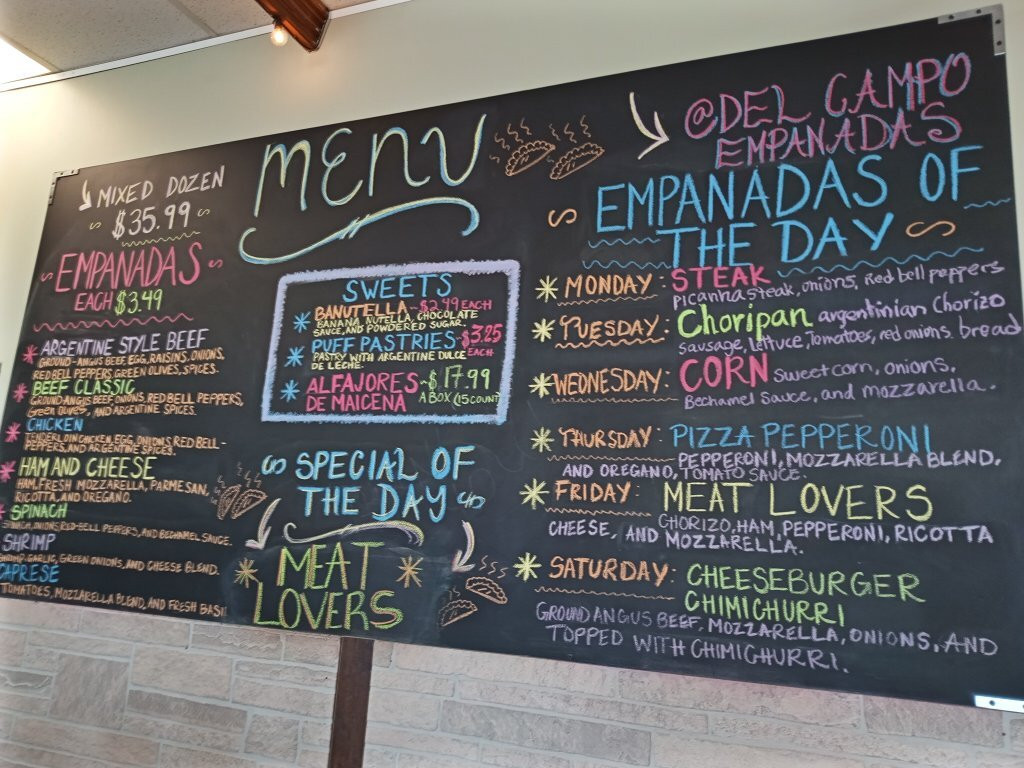 MENU
MIXED DOZEN
$35.99
EMPANADAS
EACH $3.49
ARGENTINE STYLE BEEF
GROUND-ANGUS BEEF, EGG, RAISINS, ONIONS,
RED BELL PEPPERS, GREEN OLIVES, SPICES.
BEEF CLASSIC
GROUND ANGUS BEEF, ONIONS, RED BELL PEPPERS,
Green olives, AND ARGENTINE SPICES.
CHICKEN
TENDERLOIN CHICKEN, EGG, ONIONS, RED BELL-
PEPPERS, AND ARGENTINE SPICES.
HAM AND CHEESE
HAM, FRESH MOZZARELLA, PARMESAN,
RICOTTA, AND OREGANO.
SPINACH
SPINACH, ONIONS, RED-BELL PEPPERS, AND BECHAMEL SAUCE.
SHRIMP
SHRIMP, GARLIC, GREEN ONIONS, AND CHEESE BLEND.
CAPRESE
TOMATOES, MOZZARELLA BLEND, AND FRESH BASIL
SWEETS
BANUTELLA-$2.49 EACH
BANANA, NUTELLA, CHOCOLATE
SAUCE, AND POWDERED SUGAR.
PUFF PASTRIES-$3.25
EACH
PASTRY WITH ARGENTINE DULCE
DE LECHE.
ALFAJORES-$17.99
DE MAICENA A BOX (15 COUNT)
SPECIAL OF
THE DAY
MEAT
LOVERS
@DEL CAMPO
EMPANADAS
EMPANADAS OF
THE DAY
MONDAY: STEAK
picanha steak, onions, Red bell peppers
TUESDAY: Choripan argentinian Chorizo
sausage, lettuce, tomatoes, red onions. bread
WEDNESDAY: CORN sweet corn, onions,
Bechamel Sauce, and mozzarella.
THURSDAY: PIZZA PEPPERONI
PEPPERONI, MOZZARELLA BLEND,
AND OREGANO, TOMATO SAUCE.
FRIDAY: MEAT LOVERS
CHORIZO, HAM, PEPPERONI, RICOTTA
CHEESE, AND MOZZARELLA.
SATURDAY: CHEESEBURGER
CHIMICHURRI
GROUND ANGUS BEEF, MOZZARELLA, ONIONS, AND
TOPPED WITH CHIMICHURRI.